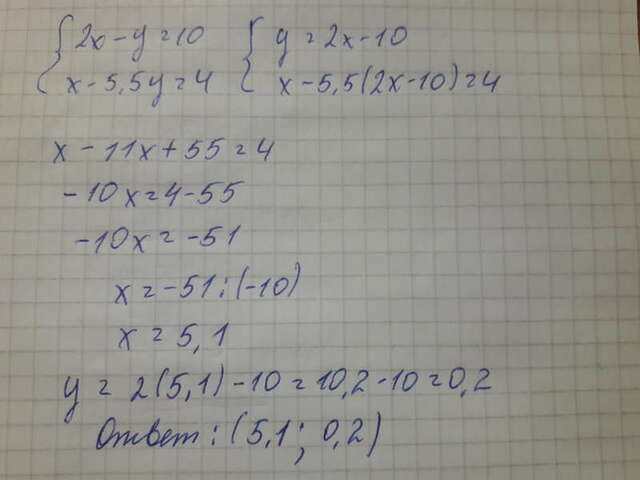 {2x - y = 10 {y = 2x - 10
x - 5,5y = 4 x - 5,5(2x - 10) = 4
x - 11x + 55 = 4
-10x = 4 - 55
-10x = -51
x = -51 : (-10)
x = 5,1
y = 2(5,1) - 10 = 10,2 - 10 = 0,2
Ответ: (5,1; 0,2)